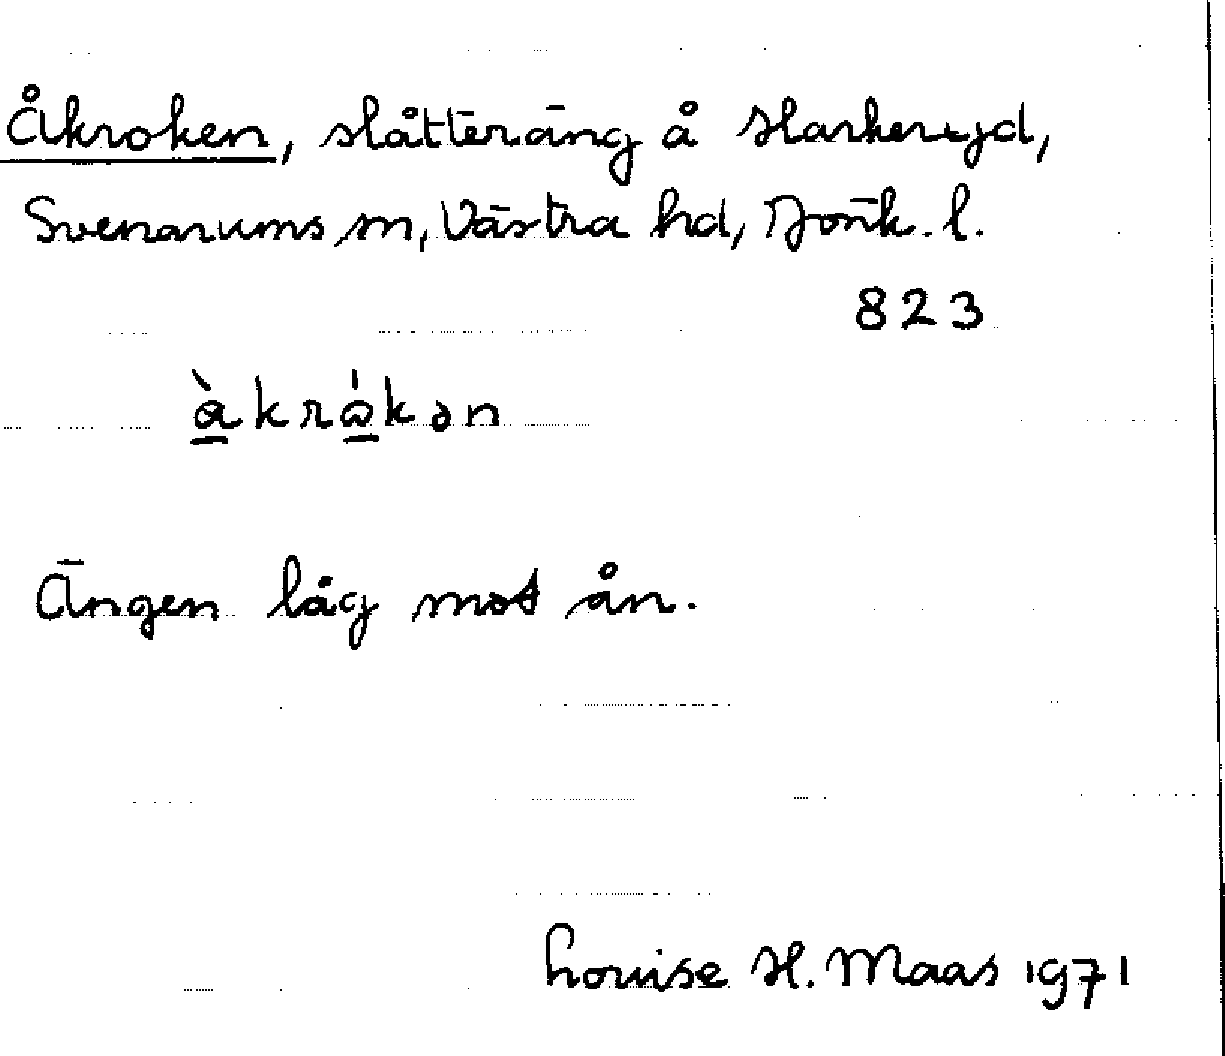 Åkroken, slåtteräng å Harkeryd,
Svenarums sn, Västra hd, Jönk. l.
823
Ängen låg mot ån.
Louise H. Maas 1971